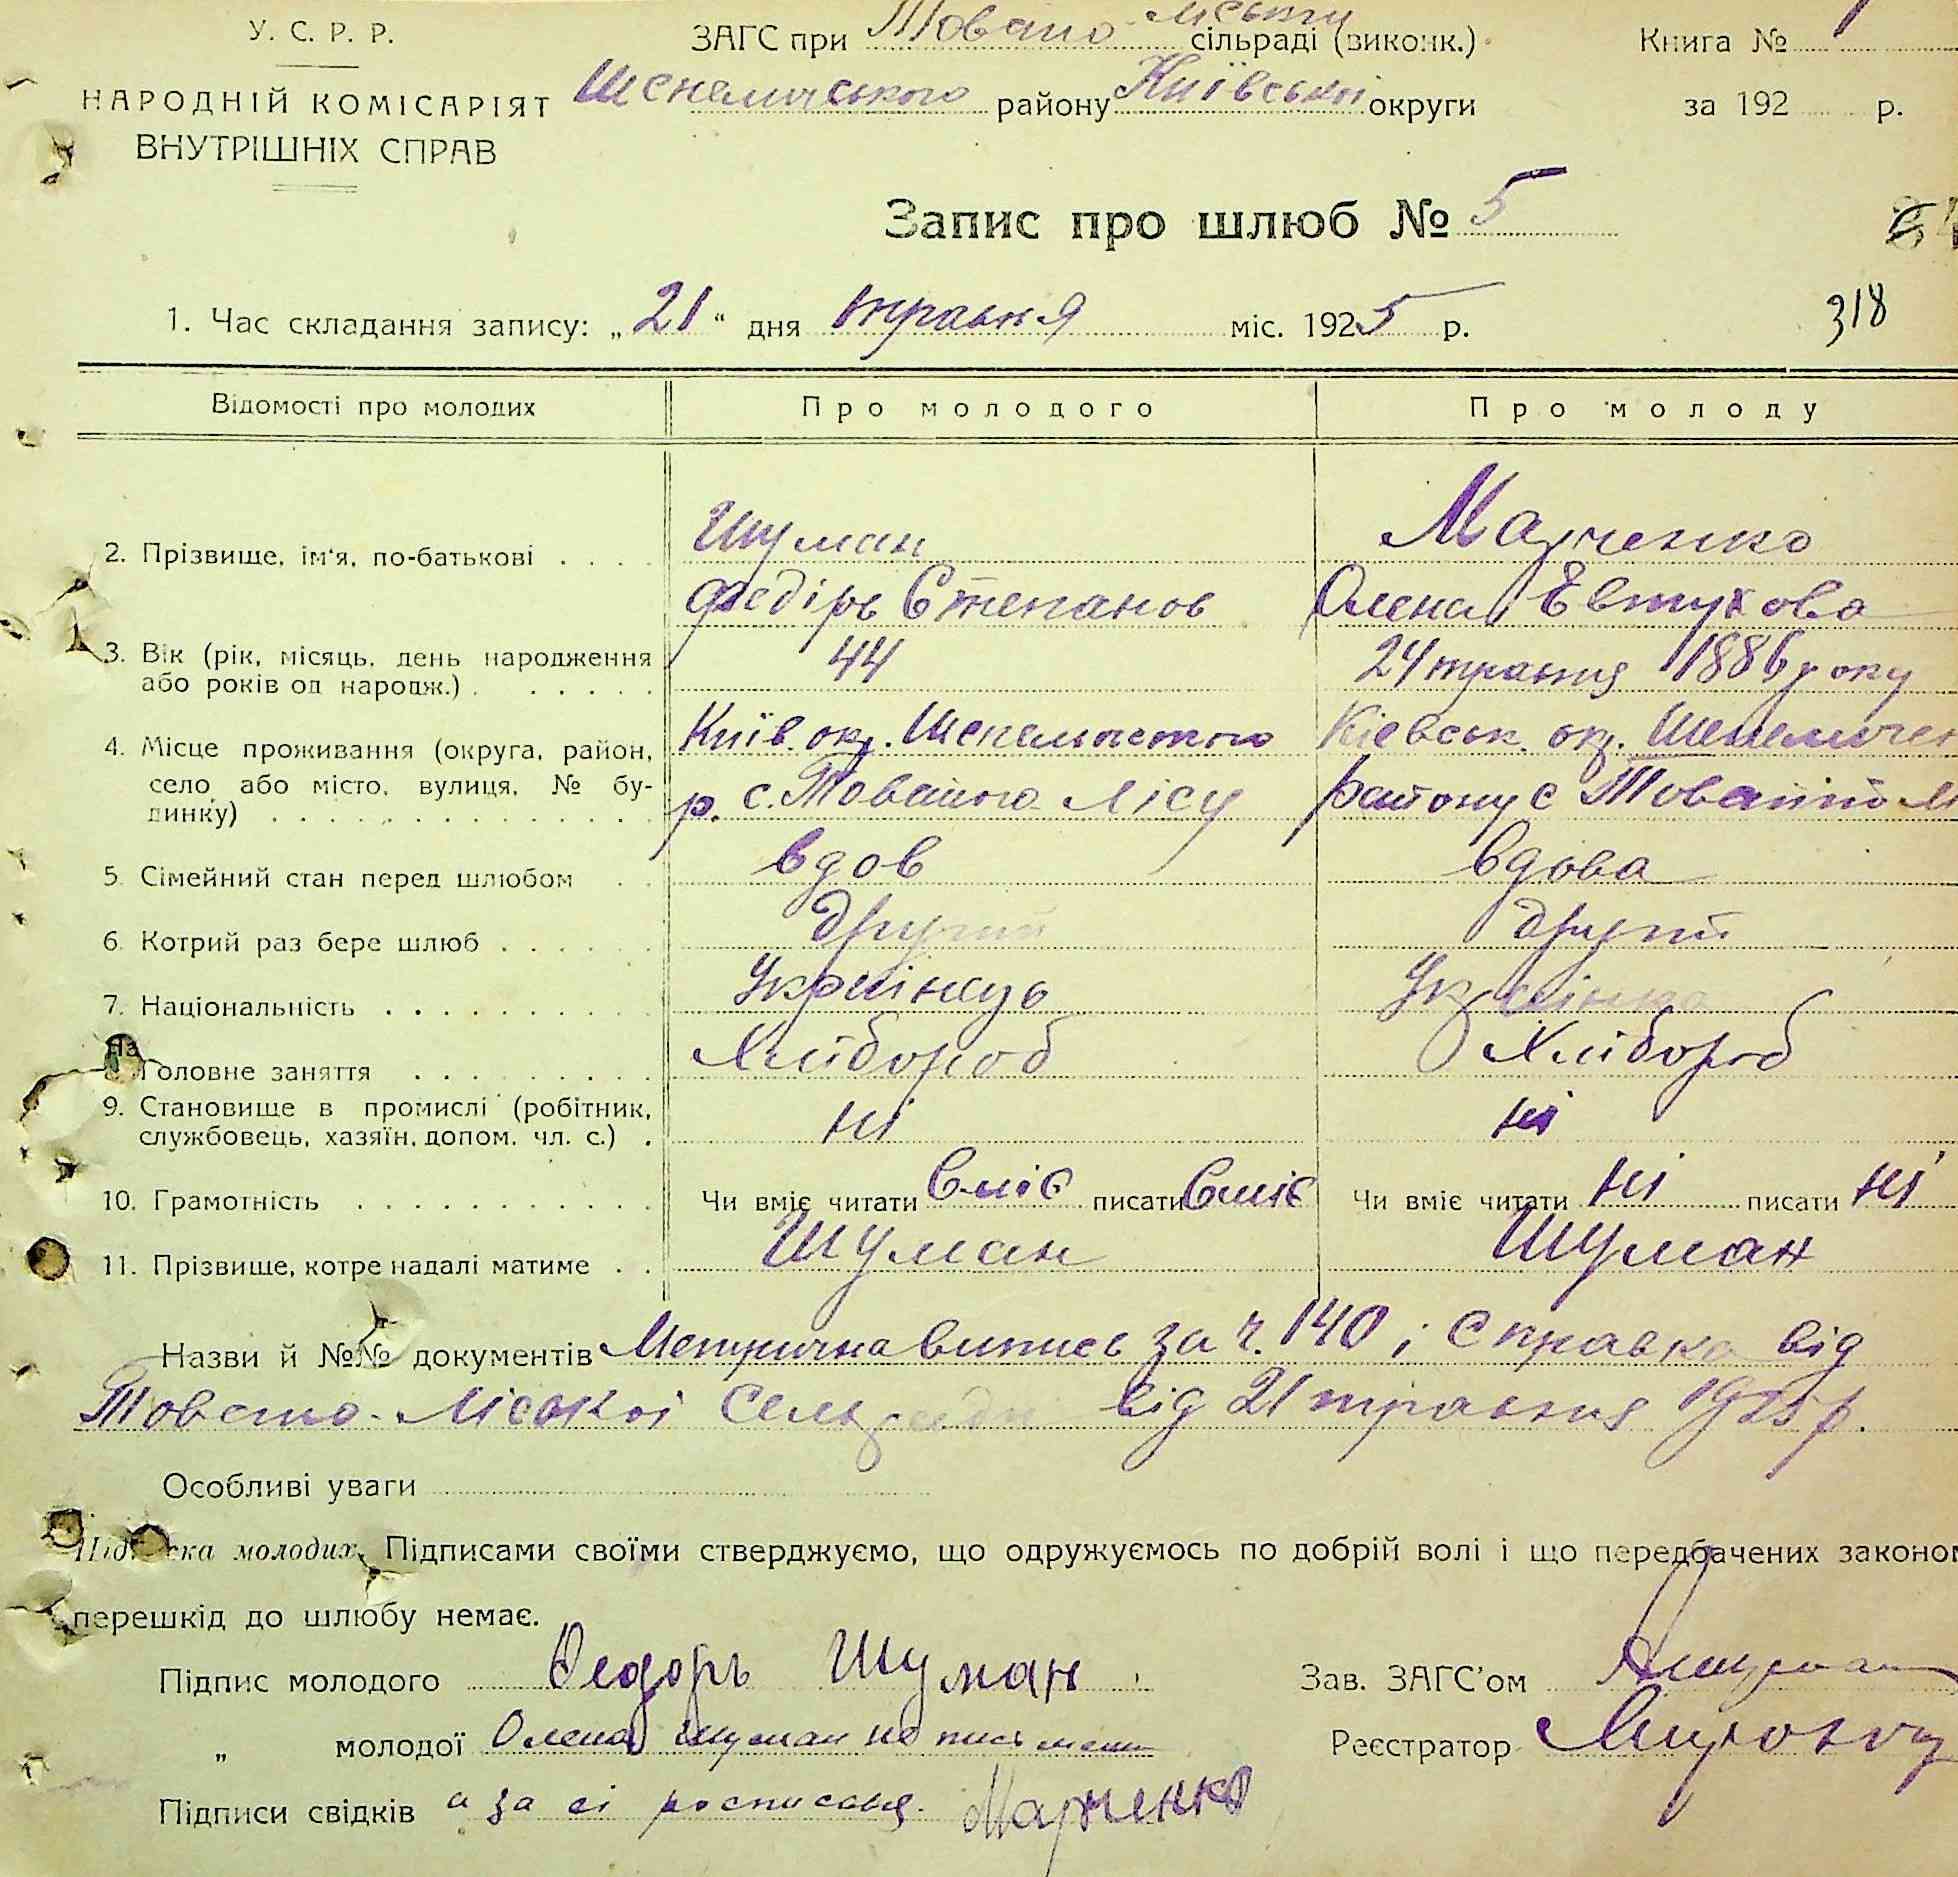 У. С. Р. Р.
НАРОДНІЙ КОМІСАРІЯТ
ВНУТРІШНІХ СПРАВ
ЗАГС при Товсто-Міській сільраді (виконк.)
Шепелицького району Київської округи
Книга № 1
за 192 р.
Запис про шлюб № 5
318
1. Час складання запису: „21“ дня травня міс. 1925 р.
Відомості про молодих Про молодого Про молоду
2. Прізвище, ім'я, по-батькові Шуман Марченко
Федіръ Степанов Олена Евтухова
3. Вік (рік, місяць, день народження 44 24 травня 1886 року
або років од нарощж.)
4. Місце проживання (округа, район, Київ. окр. Кіевськ. окр.
село або місто, вулиця, № бу- р. с. Лісу району с
динку)
5. Сімейний стан перед шлюбом вдов вдова
6. Котрий раз бере шлюб другий другий
7. Національність Українець Українка
Головне заняття Хлібороб Хлібороб
9. Становище в промислі (робітник, ні ні
службовець, хазяїн, допом. чл. с.)
10. Грамотність Чи вміє читати вміє писати вміє Чи вміє читати ні писати ні
11. Прізвище, котре надалі матиме Шуман Шуман
Назви й №№ документів Метрична випись за ч. 140 і справка від
Сельради від 21 травня 1925 р.
Особливі уваги
молодих. Підписами своїми стверджуємо, що одружуємось по добрій волі і що передбачених законом
перешкід до шлюбу немає.
Підпис молодого Федоръ Шуман
Зав. ЗАГС'ом
„ молодої Олена Шуман не письмен
Реєстратор
Підписи свідків а за еі росписався Марченко